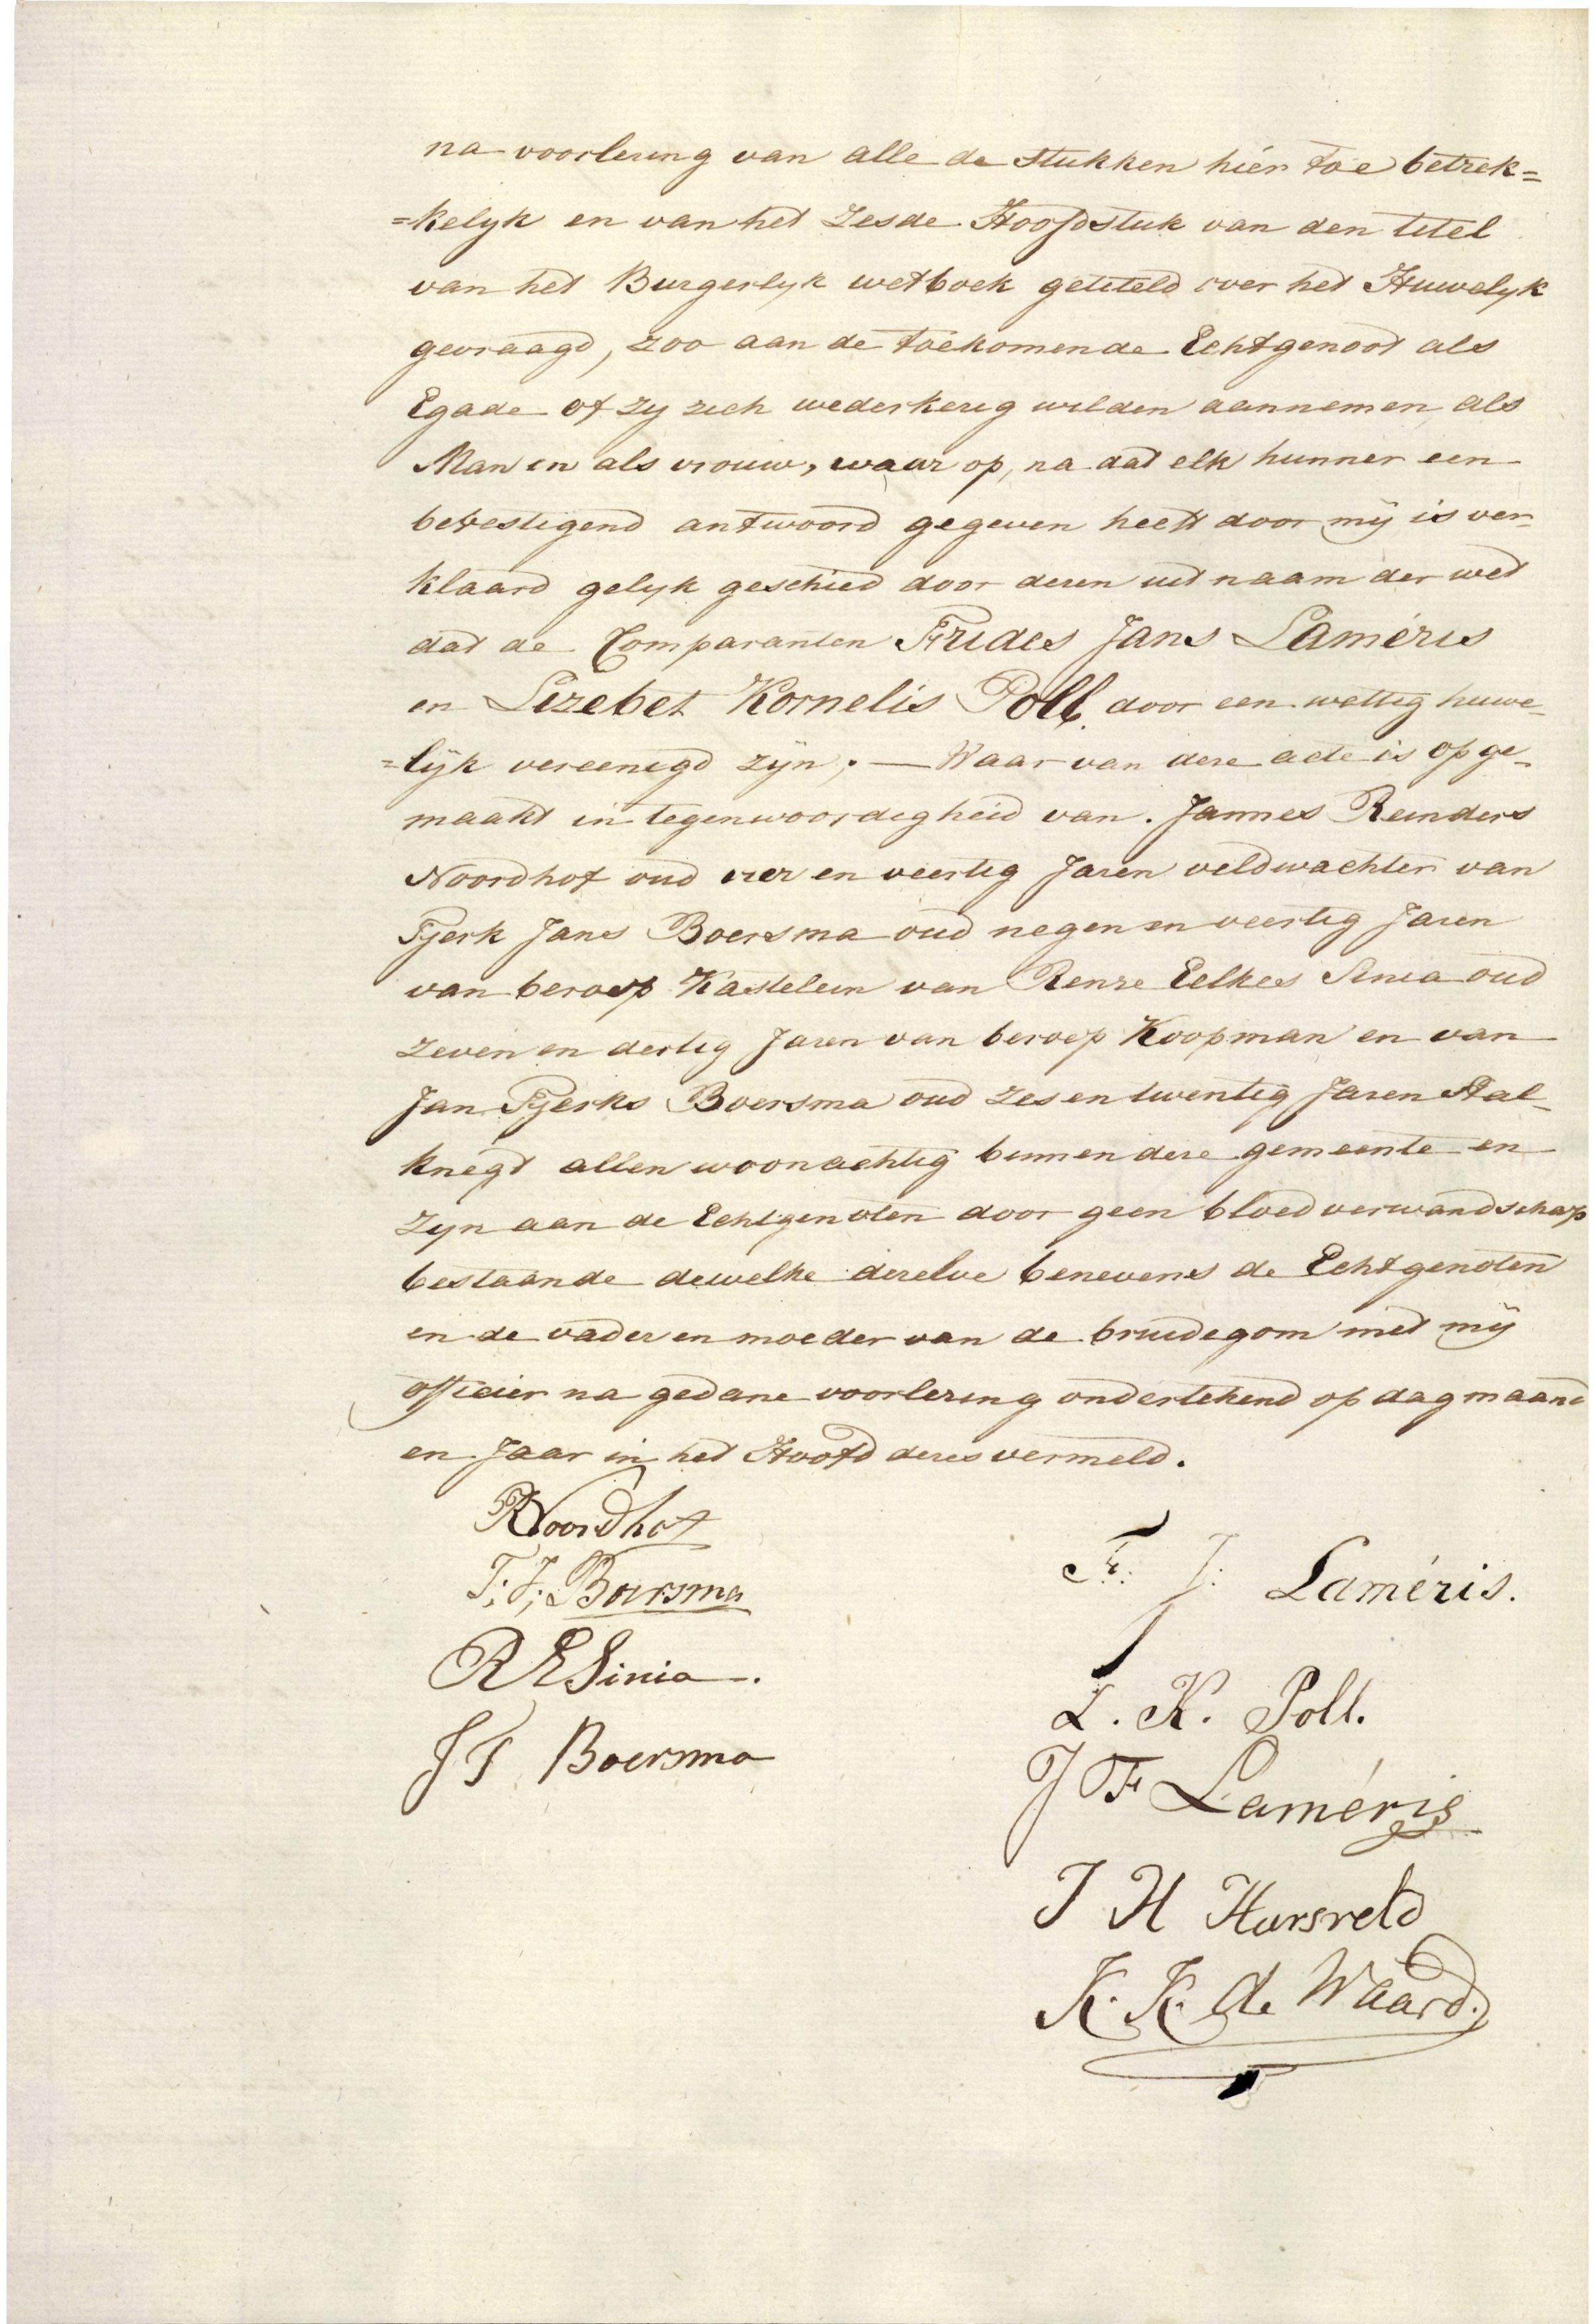 na voorlezing van alle de stukken hier toe betrek=
=kelyk en van het Zesde Hoofdstuk van den titel
van het Burgerlyk wetboek getiteld over het Huwelyk
gevraagd, zoo aan de toekomende Echtgenoot als
Egade of zy zich wederkerig wilden aannemen, als
Man en als vrouw, waar op, na dat elk hunner een
bevestigend antwoord gegeven heeft door mij is ver-
klaard gelyk geschied door dezen uit naam der wet
dat de Comparanten Fridés Jans Laméris
en Lizebet Kornelis Poll. door een wettig huwe-
=lijk vereenigd zijn; — Waar van deze acte is opge-
maakt in tegenwoordigheid van. Jannes Reinders
Noordhof oud vier en veertig Jaren veldwachter van
Tjerk Jans Boersma oud negen en veertig Jaren
van beroep Kastelein van Renze Eelkes Sinia oud
Zeven en dertig Jaren van beroep Koopman en van
Jan Tjerks Boersma oud zes en twentig Jaren Stal-
knegt allen woonachtig binnen deze gemeente en
zyn aan de Echtgenoten door geen bloedverwandschap
bestaande dewelke dezelve benevens de Echtgenoten
en de vader en moeder van de bruidegom met mij
officier na gedane voorlezing ondertekend op dag maand
en Jaar in het Hoofd dezes vermeld.
RNoordhof
T; J; Boersma
R E Sinia.
J T Boersma
Fr: J: Laméris.
L. K. Poll.
J F Laméris
J H Horsveld
K. K. de Waard.